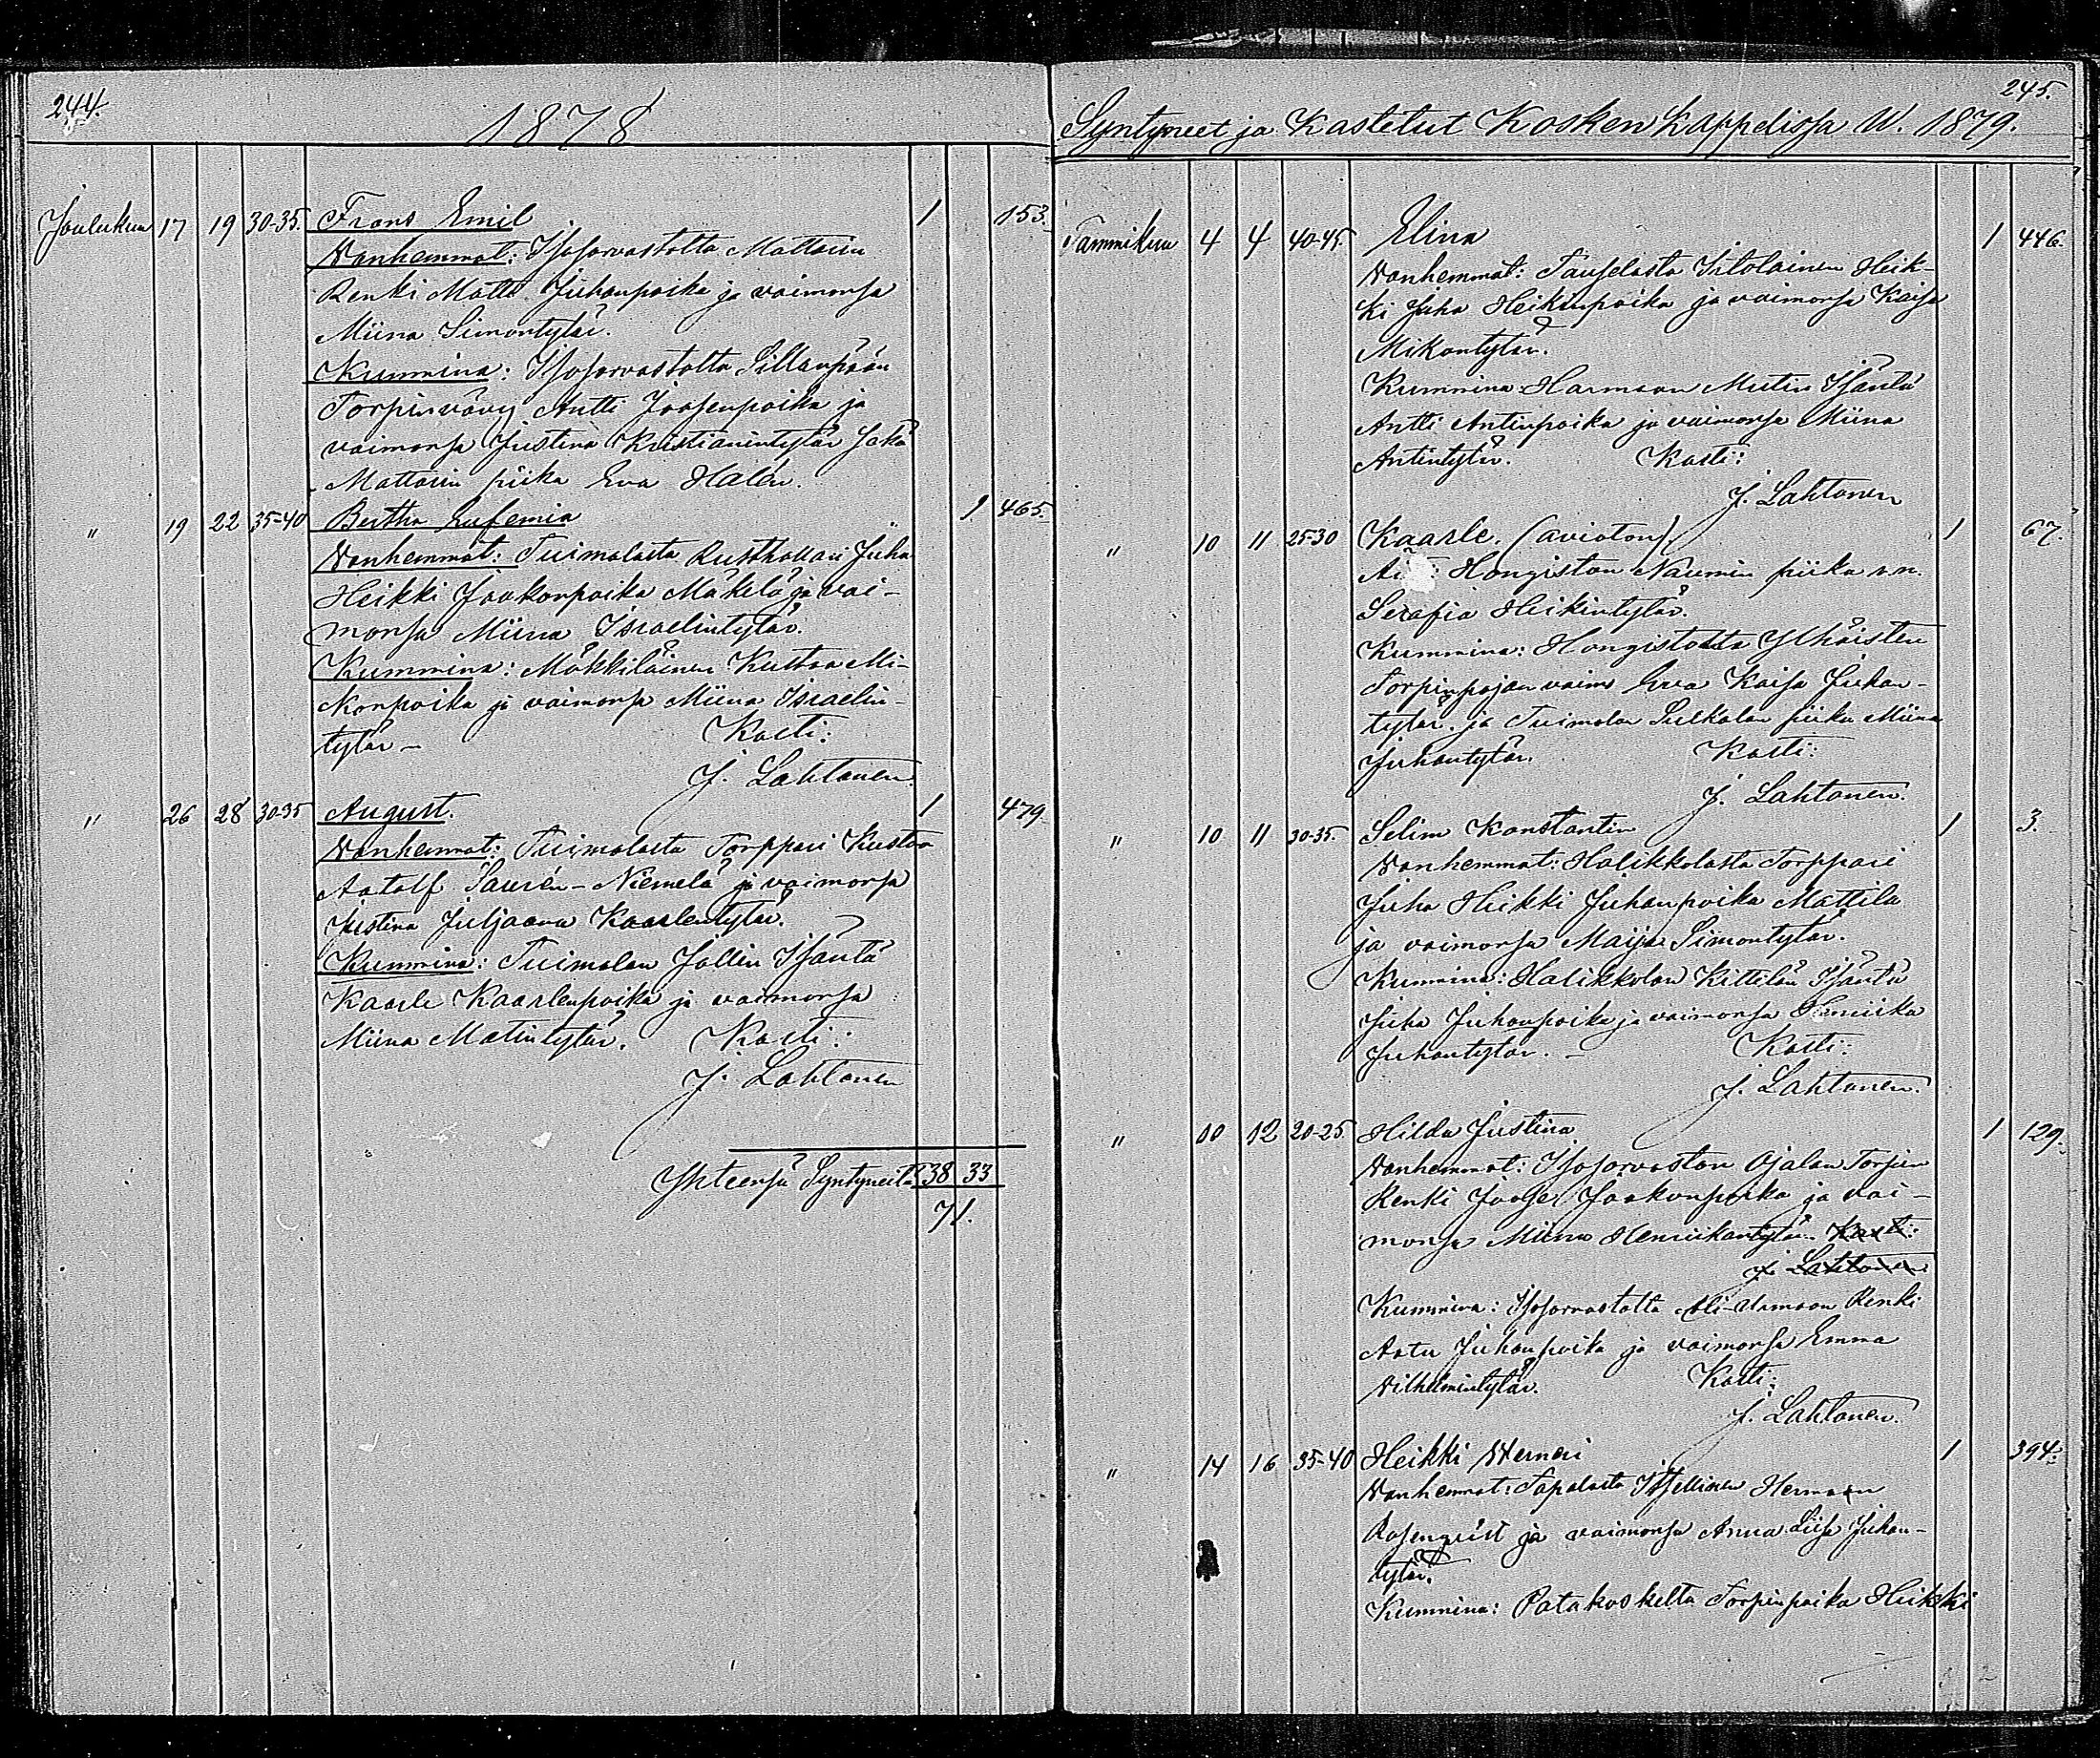 244.
1878
Joulukuu 17 19 30-35. Frans Emil 1 153.
Vanhemmat: Isosorvastolta Mattarin
Renki Matti Juhanpoika ja vaimonsa
Miina Simontytär.
Kummina: Isosorvastolta Sillanpään
Torpinvävy Antti Joosenpoika ja
vaimonsa Justina Kristianintytär sekä
Mattarin piika Eva Halén.
" 19 22 35-40 Bertha Eufemia 1 465.
Vanhemmat: Tuimalasta Rusthollari Juha
Heikki Jaakonpoika Mäkelä ja vai-
monsa Miina Israelintytär.
Kummina: Mäkkiläinen Kustaa Mi-
konpoika ja vaimonsa Miina Israelin-
tytär – Kasti:
J. Lahtonen
" 26 28 30-35 August. 1 479.
Vanhemmat: Tuimalasta Torppari Kustaa
Aatolf Saurén-Niemelä ja vaimonsa
Justina Juljaana Kaarlentytär.
Kummina: Tuimalan Jallin Isäntä
Kaarle Kaarlenpoika ja vaimonsa
Miina Matintytär. Kasti:
J. Lahtonen
Yhteensä Syntyneitä 38 33
71.
245.
Syntyneet ja Kastetut Kosken Kappelissa W. 1879.
Tammikuu 4 4 40-45. Elina 1 446.
Vanhemmat: Talselasta Itolainen Heik-
ki Juha Heikinpoika ja vaimonsa Kaisa
Mikontytär.
Kummina: Harmaan Mutin Isäntä
Antti Antinpoika ja vaimonsa Miina
Antintytär. Kasti:
J. Lahtonen
" 10 11 25-30 Kaarle. (avioton) 1 67.
Hongiston Naumin piika n.n.
Serafia Heikintytär.
Kummina: Hongistosta Ylhäisten
Torpinpojan vaimo Eva Kaisa Juhan-
tytär. ja Tuimalan Sulkalan piika Miina
Juhantytär. Kasti:
J. Lahtonen.
" 10 11 30-35. Selim Konstantin 1 3.
Vanhemmat: Halikkolasta Torppari
Juha Heikki Juhanpoika Mattila
ja vaimonsa Maija Simontytär.
Kummina: Halikkolan Kittilän Isäntä
Juha Juhanpoika ja vaimonsa
Juhantytär. – Kasti:
J. Lahtonen.
" 10 12 20-25. Hilda Justina 1 129.
Vanhemmat: Isosorvaston Ojalan Torpin
Renki Joose Jaakonpoika ja vai-
monsa Miina Henriikantytär. Kasti:
J. Lahtonen.
Kummina: Isosorvastolta Ali-Uamaan Renki
Aatu Juhanpoika ja vaimonsa Emma
Vilhelmintytär. Kasti:
J. Lahtonen.
" 14 16 35-40 Heikki Werneri 1 394.
Vanhemmat: Tapalasta Itsellinen Hermaan
Rosenqvist ja vaimonsa Anna Liisa Juhan-
tytär.
Kummina: Patakoskelta Torpinpoika Heikki